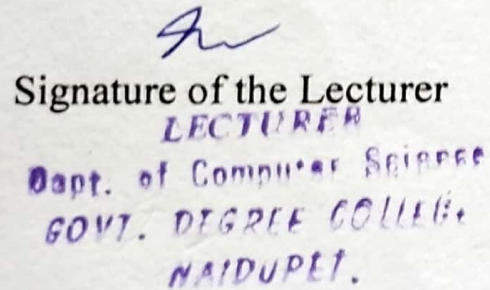 Signature of the Lecturer
LECTURER
Dept. of Computer Science
GOVT. DEGREE COLLEGE
NAIDUPET.